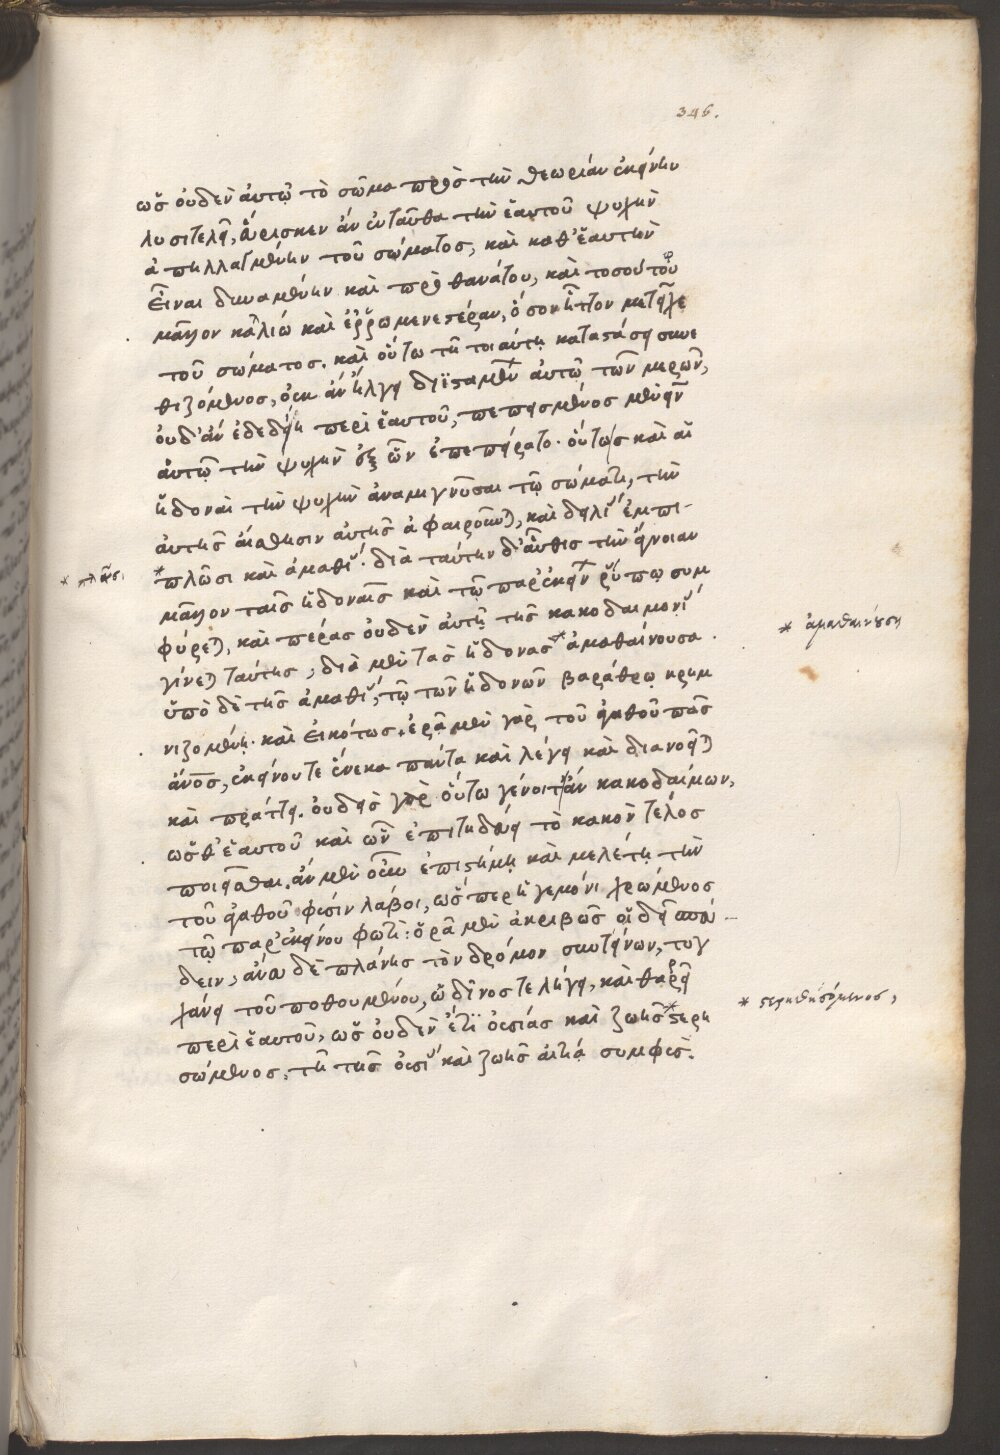 346.
ὡς οὐδὲν αὐτῷ τὸ σῶμα πρὸς τὴν θεωρίαν ἐκείνην
λυσιτελεῖ, εὕρισκεν ἂν ἐνταῦθα τὴν ἑαυτοῦ ψυχὴν
ἀπηλλαγμένην τοῦ σώματος, καὶ καθ' ἑαυτὴν
εἶναι δυναμένην καὶ πρὸ θανάτου, καὶ τοσούτου
μᾶλλον καλλίω καὶ ἐρρωμενεστέραν, ὅσον ἧττον μετεῖχε
τοῦ σώματος. καὶ οὕτω τῇ τοιαύτῃ καταστάσει συνε
θιζόμενος, οὐκ ἂν ἤλγει διϊσταμένων αὐτῷ τῶν μερῶν,
οὐδ' ἂν ἐδεδίει περὶ ἑαυτοῦ, πεπεισμένος μένειν
αὐτῷ τὴν ψυχὴν ἐξ ὧν ἐπεπείρατο. οὕτως καὶ αἱ
ἡδοναὶ τὴν ψυχὴν ἀναμιγνῦσαι τῷ σώματι, τὴν
αὐτῆς αἴσθησιν αὐτῆς ἀφαιροῦνται, καὶ δειλίας ἐμπι-
* πλῶσι καὶ ἀμαθίας. διὰ ταύτην δ' αὖθις τὴν ἄνοιαν
μᾶλλον ταῖς ἡδοναῖς καὶ τῷ παρ' ἐκείνων ῥύπῳ συμ
φύρεται, καὶ πέρας οὐδὲν αὐτῇ τῆς κακοδαιμονίας
γίνεται ταύτης, διὰ μὲν τὰς ἡδονὰς * ἀμαθαίνουσα
ὑπὸ δὲ τῆς ἀμαθίας, τῷ τῶν ἡδονῶν βαράθρῳ κρημ
νιζομένη. καὶ εἰκότως. ἐρᾷ μὲν γὰρ τοῦ ἀγαθοῦ πᾶς
ἄνος, ἐκείνου τε ἕνεκα πάντα καὶ λέγει καὶ διανοεῖται
καὶ πράττει. οὐδεὶς γὰρ οὕτω γένοιτ' ἂν κακοδαίμων,
ὥσθ' ἑαυτοῦ καὶ ὧν ἐπιτηδεύει τὸ κακὸν τέλος
ποιεῖσθαι. ἂν μὲν οὖν ἐπιστήμῃ καὶ μελέτῃ τὴν
τοῦ ἀγαθοῦ φύσιν λάβοι, ὥσπερ ἡγεμόνι χρώμενος
τῷ παρ' ἐκείνου φωτί: ὁρᾷ μὲν ἀκριβῶς οἷ δεῖ
δειν, ἄνευ δὲ πλάνης τὸν δρόμον συντείνων, τυγ
χάνει τοῦ ποθουμένου, ὠδῖνός τε λήγει, καὶ θαρρεῖ
περὶ ἑαυτοῦ, ὡς οὐδὲν ἔτι οὐσίας καὶ ζωῆς * στερη
σόμενος, τῇ τῆς οὐσίας καὶ ζωῆς αἰτίᾳ συμφυείς.
* ἀμαθαινούση
* στερηθησόμενος,